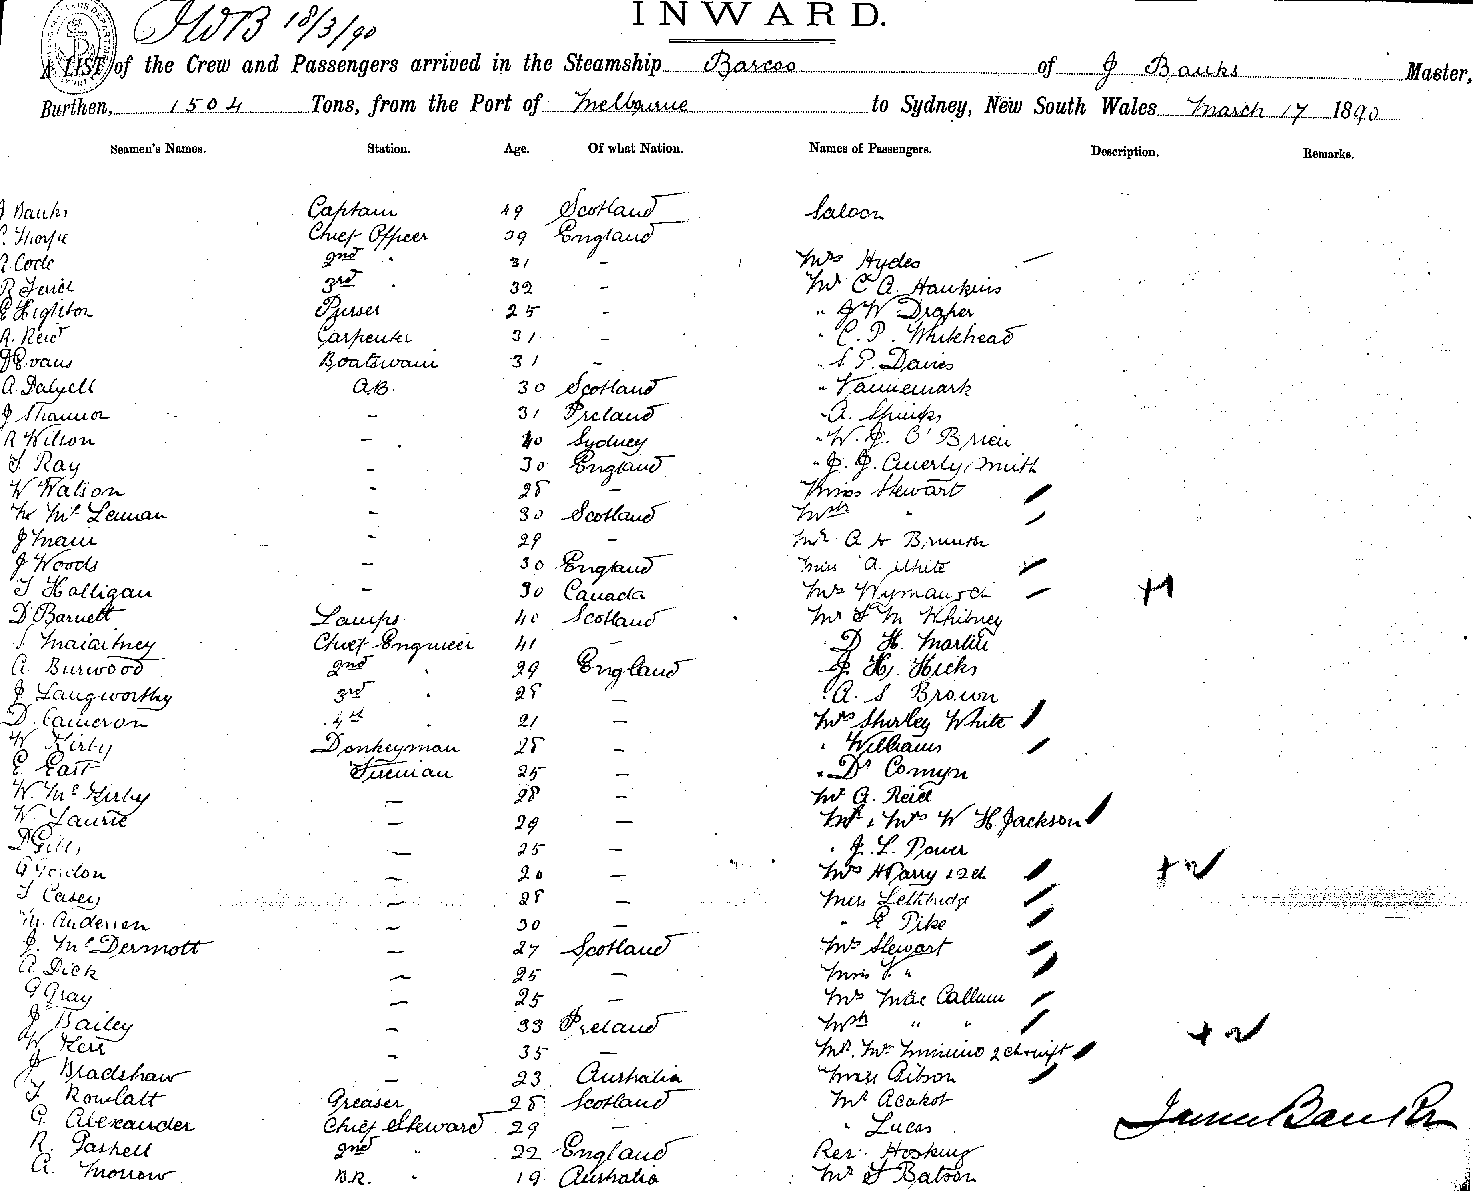 INWARD.
JWB 18/3/90
A LIST of the Crew and Passengers arrived in the Steamship Barcoo of J Banks Master,
Burthen, 1504 Tons, from the Port of Melbourne to Sydney, New South Wales March 17 1890
Seamen's Names. Station. Age. Of what Nation. Names of Passengers. Description. Remarks.
J Banks Captain 49 Scotland Saloon
Thorpe Chief Officer 39 England
Code 2nd " 31 - Mrs Hydes
3rd " 32 - Mr C A. Hankins
E Highton Purser 25 - " J W Draper
A. Reid Carpenter 31 - " C. P. Whitehead
D Evans Boatswain 31 - " S P. Davies
A Dalyell A.B. 30 Scotland " Vannemark
J Shannon - 31 Ireland " A. Spinks
R Wilson - 40 Sydney " W. J. O'Brien
T Ray - 30 England " J. J. Smith
W Watson - 28 - Miss Stewart
Mc Lennan - 30 Scotland
J Main - 29 - Mr A
J Woods - 30 England Miss A. White
T Halligan - 30 Canada Mrs
D Barnett Lamps 40 Scotland Mr F M Whitney
S Macartney Chief Engineer 41 - D H. Martin
A. Burwood 2nd " 29 England J. H. Hicks
J Langworthy 3rd " 28 - " A. S Brown
D. Cameron 4th 21 - Mrs Shirley White
W Kirby Donkeyman 28 - " Williams
E East Fireman 25 - " Dr Comyn
W. Mc Kirby - 28 - Mr A. Reid
W Laurie - 29 - Mr & Mrs W H. Jackson
D Gill - 25 - " J. L. Power
G Gordon - 20 - Mrs H Parry
T Casey - 28 - Miss Lethbridge
M. Andersen - 30 - " E Pike
J. McDermott - 27 Scotland Mrs Stewart
A. Dick - 25 - Miss
G Gray - 25 - Mrs Mac Callum
J Bailey - 33 Ireland
W Kerr - 35 - Mr. Mrs
J Bradshaw - 23 Australia Miss Gibson
T Rowlatt Greaser 28 Scotland Mr
G. Alexander Chief Steward 29 - " Lucas
R. Gaskell 2nd " 22 England Rev. Hosking
A. Morrow B.R. " 19 Australia Mr F Batson
James Banks